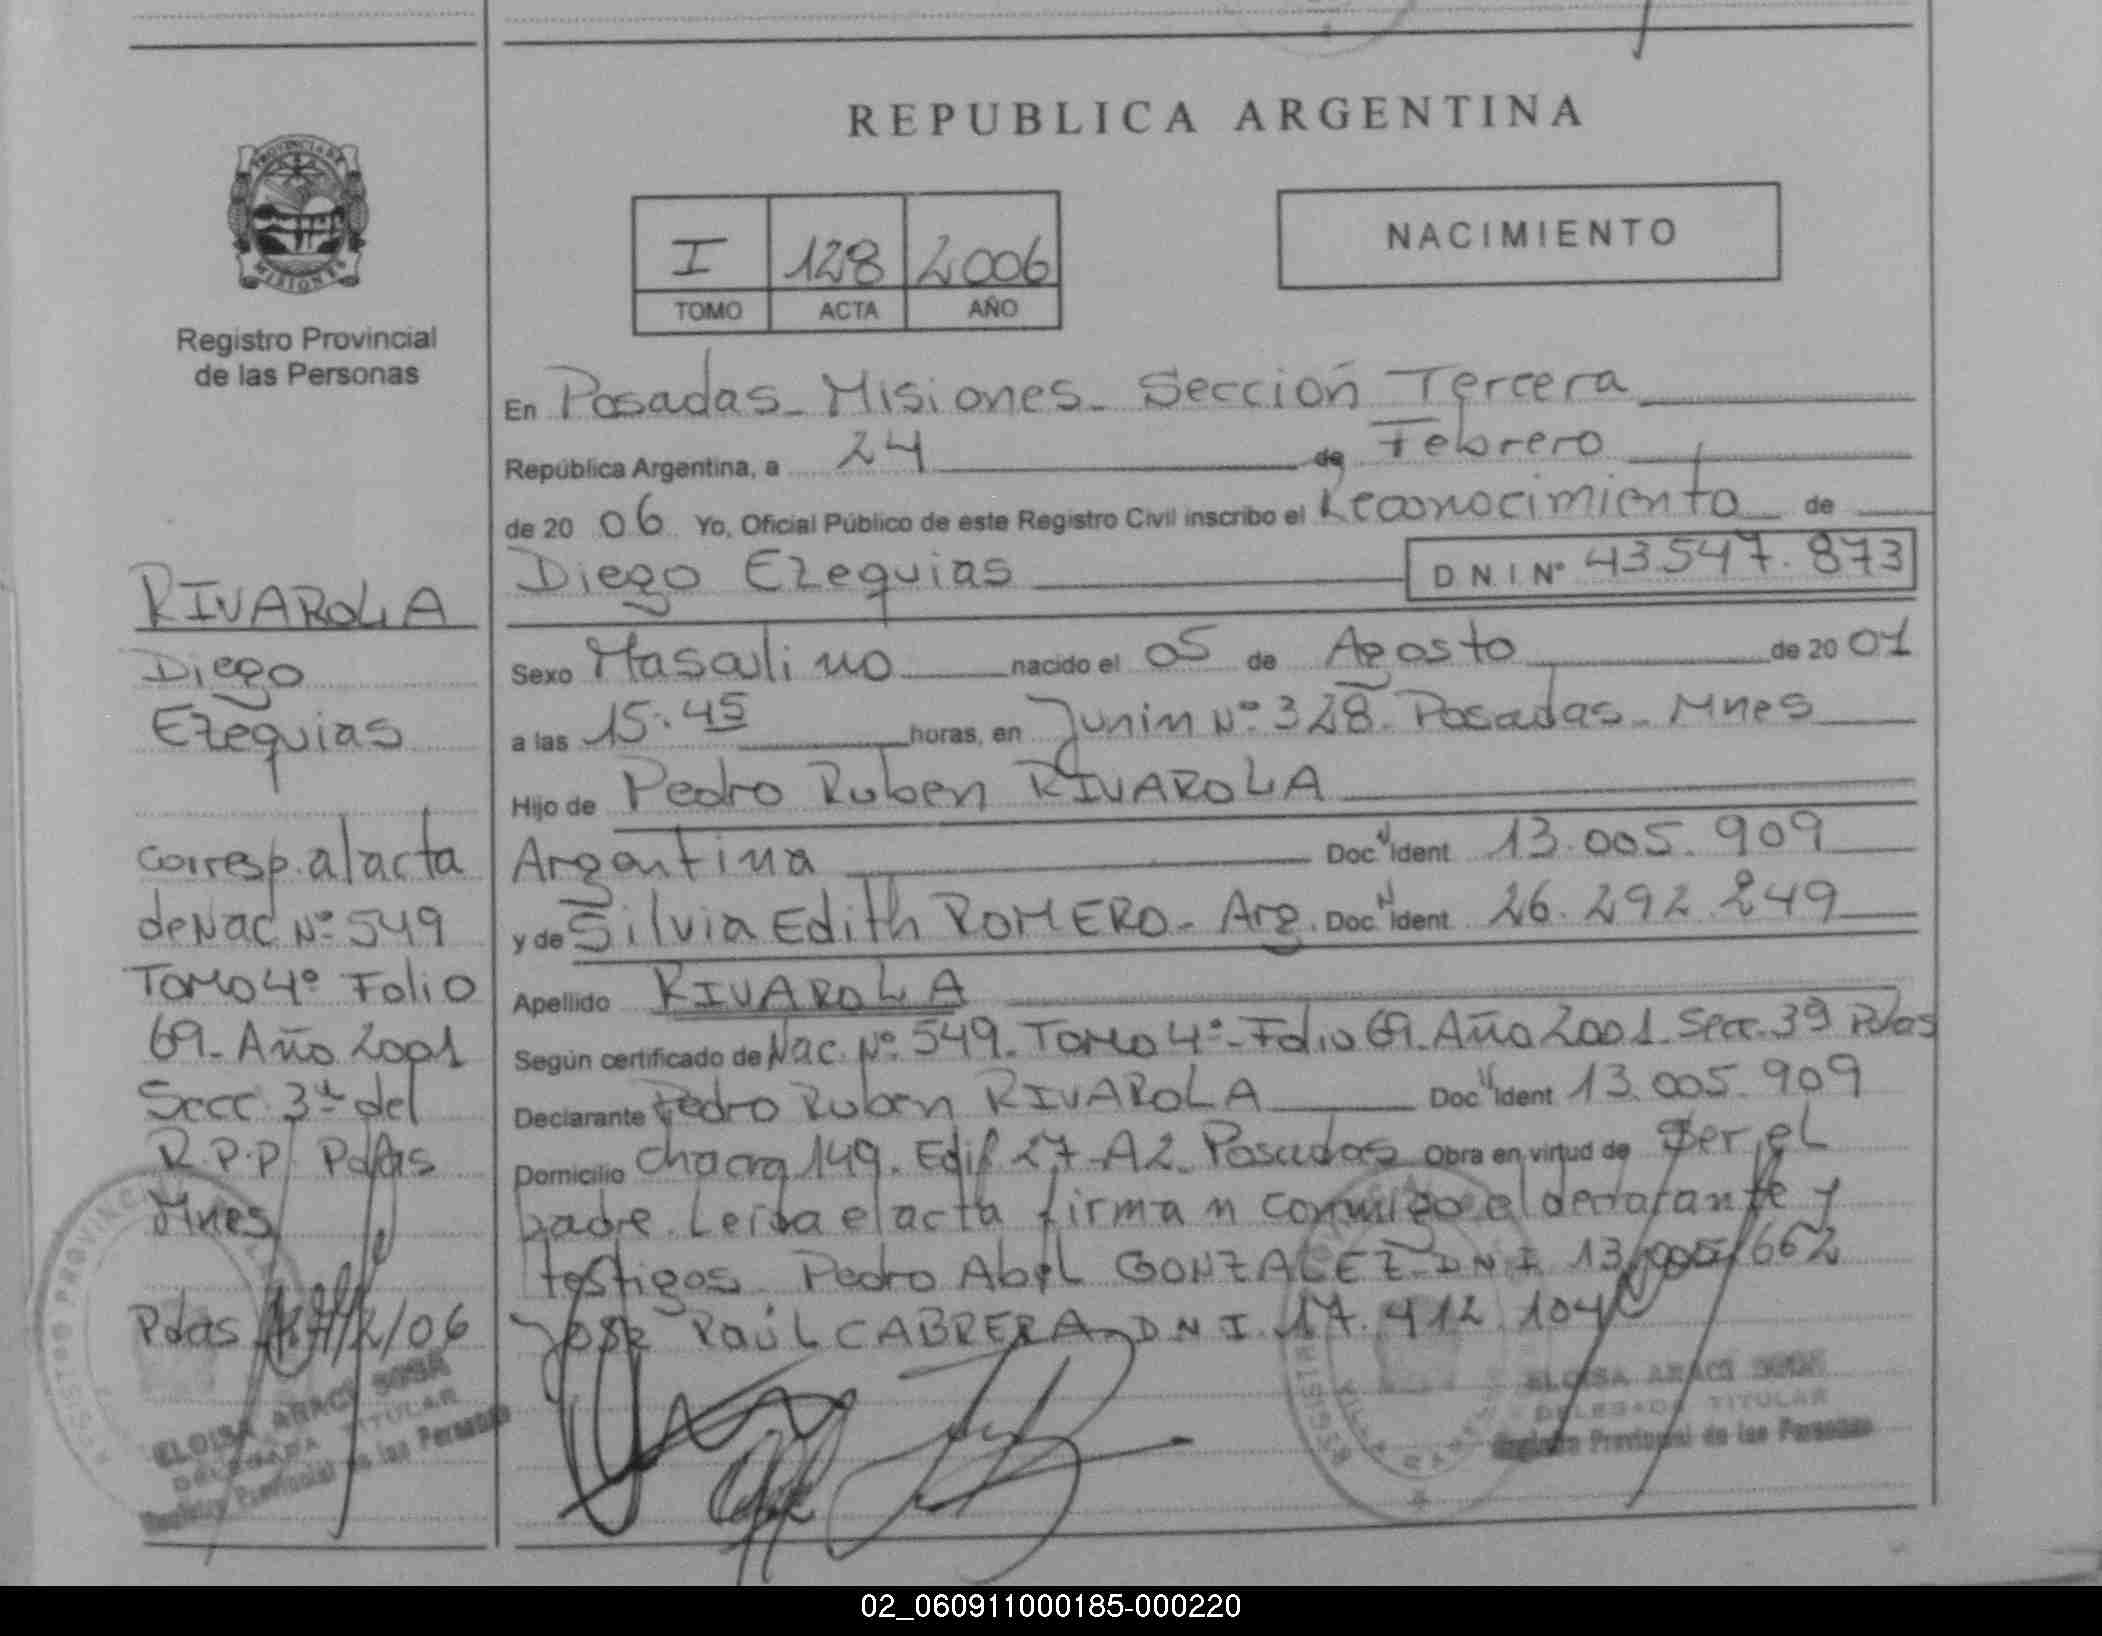 REPUBLICA ARGENTINA
PROVINCIA DE
MISIONES
Registro Provincial
de las Personas
I 128 2006
TOMO ACTA AÑO
NACIMIENTO
En Posadas - Misiones - Sección Tercera
República Argentina, a 24 de Febrero
de 2006 Yo, Oficial Público de este Registro Civil inscribo el Reconocimiento de
Diego Ezequias D N I Nº 43547.873
Sexo Masculino nacido el 05 de Agosto de 2001
a las 15:45 horas, en Junin Nº 328. Posadas - Mnes
Hijo de Pedro Ruben RIVAROLA
Argentina Doc N Ident 13.005.909
y de Silvia Edith ROMERO - Arg. Doc N Ident 26.292.249
Apellido RIVAROLA
Según certificado de Nac. Nº 549. Tomo 4º - Folio 69. Año 2001. Secc. 3ª Pdas
Declarante Pedro Ruben RIVAROLA Doc N Ident 13.005.909
Domicilio Chacra 149. Edif 27 - A2. Posadas Obra en virtud de Ser el
padre. Leída el acta firman conmigo el declarante y
testigos Pedro Abel GONZALEZ - DNI 13.005.662
José Raúl CABRERA - DNI. 17.412.104
RIVAROLA
Diego
Ezequias
corresp. al acta
de Nac Nº 549
Tomo 4º Folio
69 - Año 2001
Secc. 3ª del
R.P.P. Pdas
Mnes
Pdas /06
ELOISA ARACI SOSA
DELEGADA TITULAR
Registro Provincial de las Personas
ELOISA ARACI SOSA
DELEGADA TITULAR
Registro Provincial de las Personas
02_060911000185-000220